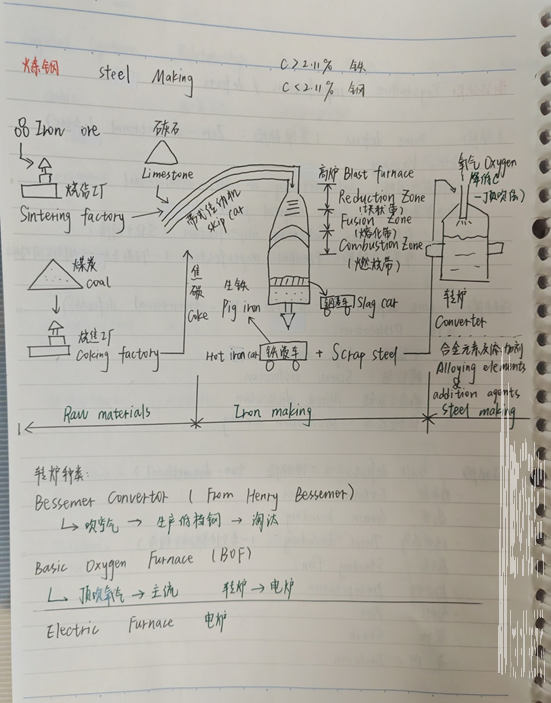 炼钢 Steel Making
C>2.11% 铁
C<2.11% 钢
Iron ore
烧结工厂
Sintering factory
煤炭
coal
炼焦工厂
Coking factory
Raw materials
石灰石
Limestone
skip car
焦炭
Coke
生铁
Pig iron
Hot iron car
铁渣车
+ Scrap steel
Iron making
高炉 Blast furnace
Reduction Zone
(块状带)
Fusion Zone
(熔化带)
Combustion Zone
(燃烧带)
钢渣车
Slag car
氧气 Oxygen
降低C
顶吹法
转炉
Converter
合金元素及添加剂
Alloying elements
&
addition agents
steel making
转炉种类:
Bessemer Convertor (From Henry Bessemer)
↳ 吹空气 → 生产低档钢 → 淘汰
Basic Oxygen Furnace (BOF)
↳ 顶吹氧气 → 主流 转炉 → 电炉
Electric Furnace 电炉